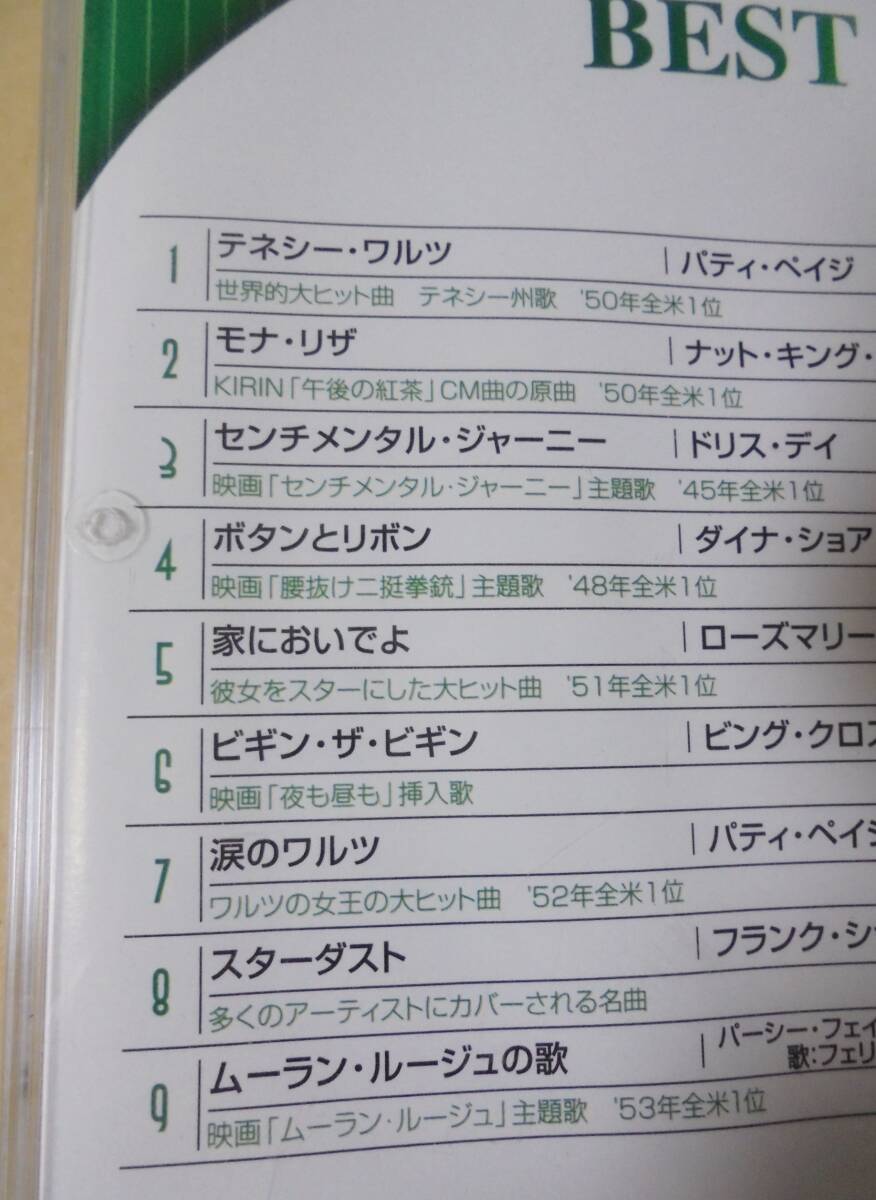 BEST
1 テネシー・ワルツ | パティ・ペイジ
世界的大ヒット曲 テネシー州歌 '50年全米1位
2 モナ・リザ | ナット・キング・
KIRIN「午後の紅茶」CM曲の原曲 '50年全米1位
3 センチメンタル・ジャーニー | ドリス・デイ
映画「センチメンタル・ジャーニー」主題歌 '45年全米1位
4 ボタンとリボン | ダイナ・ショア
映画「腰抜け二挺拳銃」主題歌 '48年全米1位
5 家においでよ | ローズマリー
彼女をスターにした大ヒット曲 '51年全米1位
6 ビギン・ザ・ビギン | ビング・クロス
映画「夜も昼も」挿入歌
7 涙のワルツ | パティ・ペイジ
ワルツの女王の大ヒット曲 '52年全米1位
8 スターダスト | フランク・シ
多くのアーティストにカバーされる名曲
9 ムーラン・ルージュの歌 | パーシー・フェイ
歌:フェリ
映画「ムーラン・ルージュ」主題歌 '53年全米1位